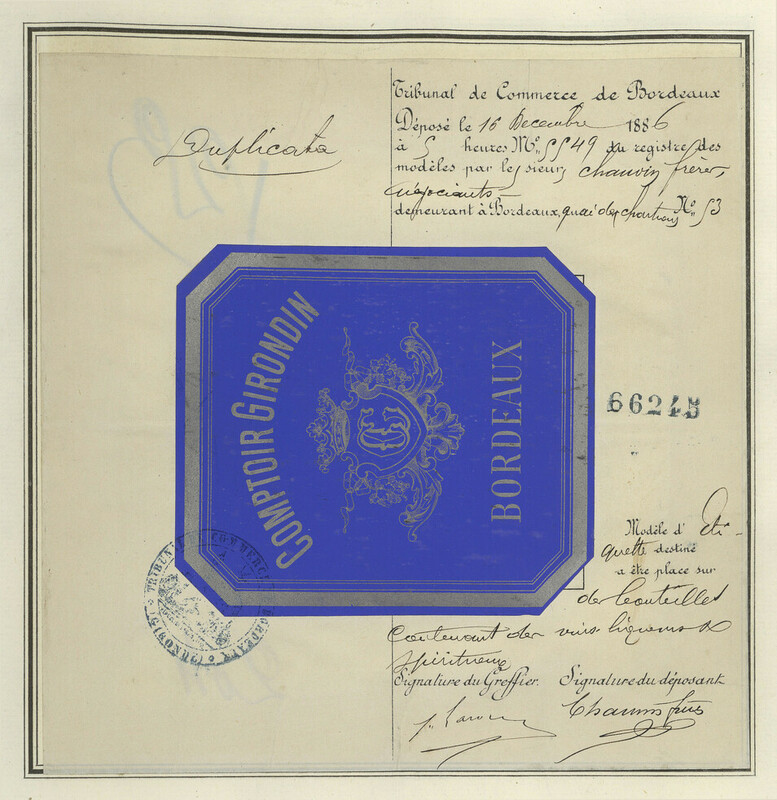 Duplicata
Tribunal de Commerce de Bordeaux
Déposé le 16 Decembre 1886
à 5 heures No 5549 du registre des
modèles par les sieurs chauvin frères,
négociants
demeurant à Bordeaux, quai des chartrons No 53
COMPTOIR GIRONDIN
CG
BORDEAUX
66245
Modèle d'éti-
quette destiné
a être place sur
des bouteilles
Contenant des vins liqueurs &
spiritueux
Signature du Greffier. Signature du déposant
Chauvin frères
TRIBUNAL DE COMMERCE BORDEAUX (GIRONDE)